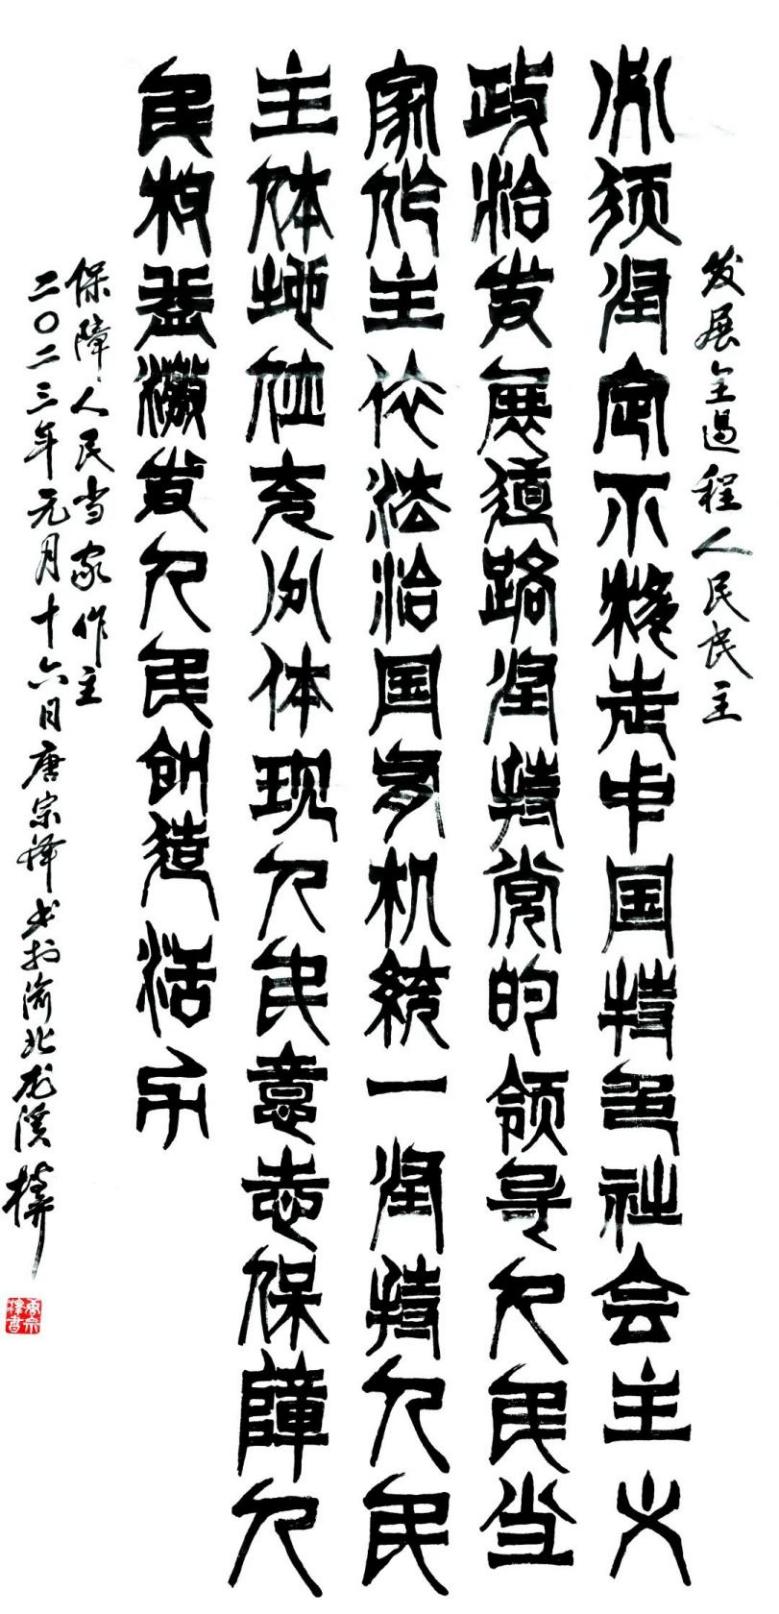 发展全过程人民民主
必须坚定不移走中国特色社会主义
政治发展道路坚持党的领导人民当
家作主依法治国有机统一坚持人民
主体地位充分体现人民意志保障人
民权益激发人民创造活力
保障人民当家作主
二〇二三年元月十六日唐宗择书于渝北龙溪